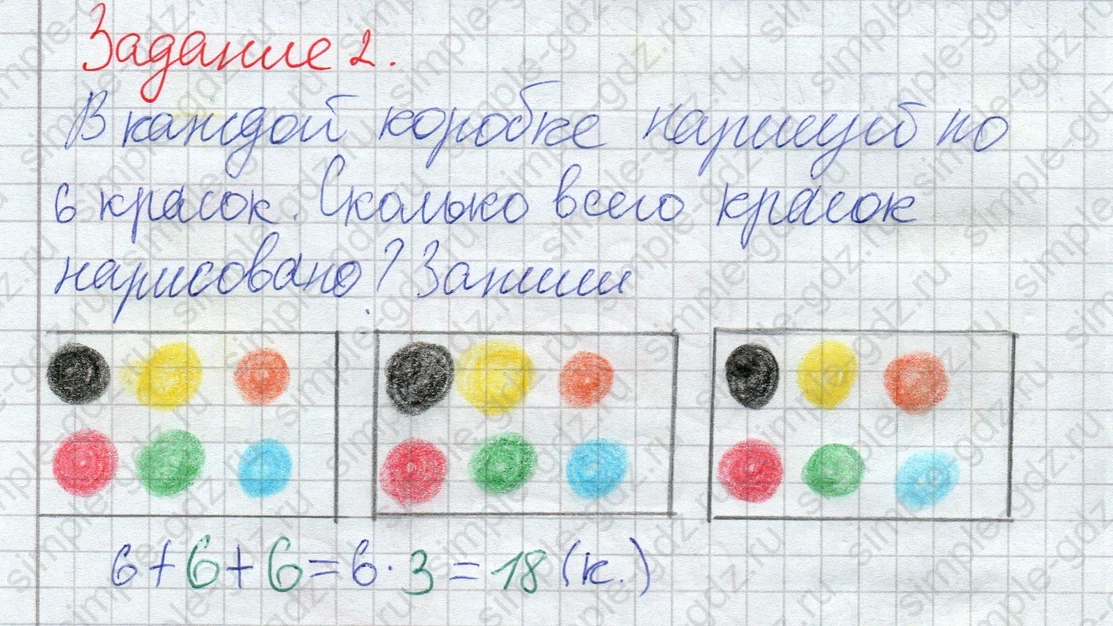 Задание 2.
В каждой коробке нарисуй по
6 красок. Сколько всего красок
нарисовано? Запиши
6+6+6=6·3=18 (к.)
simple-gdz.ru